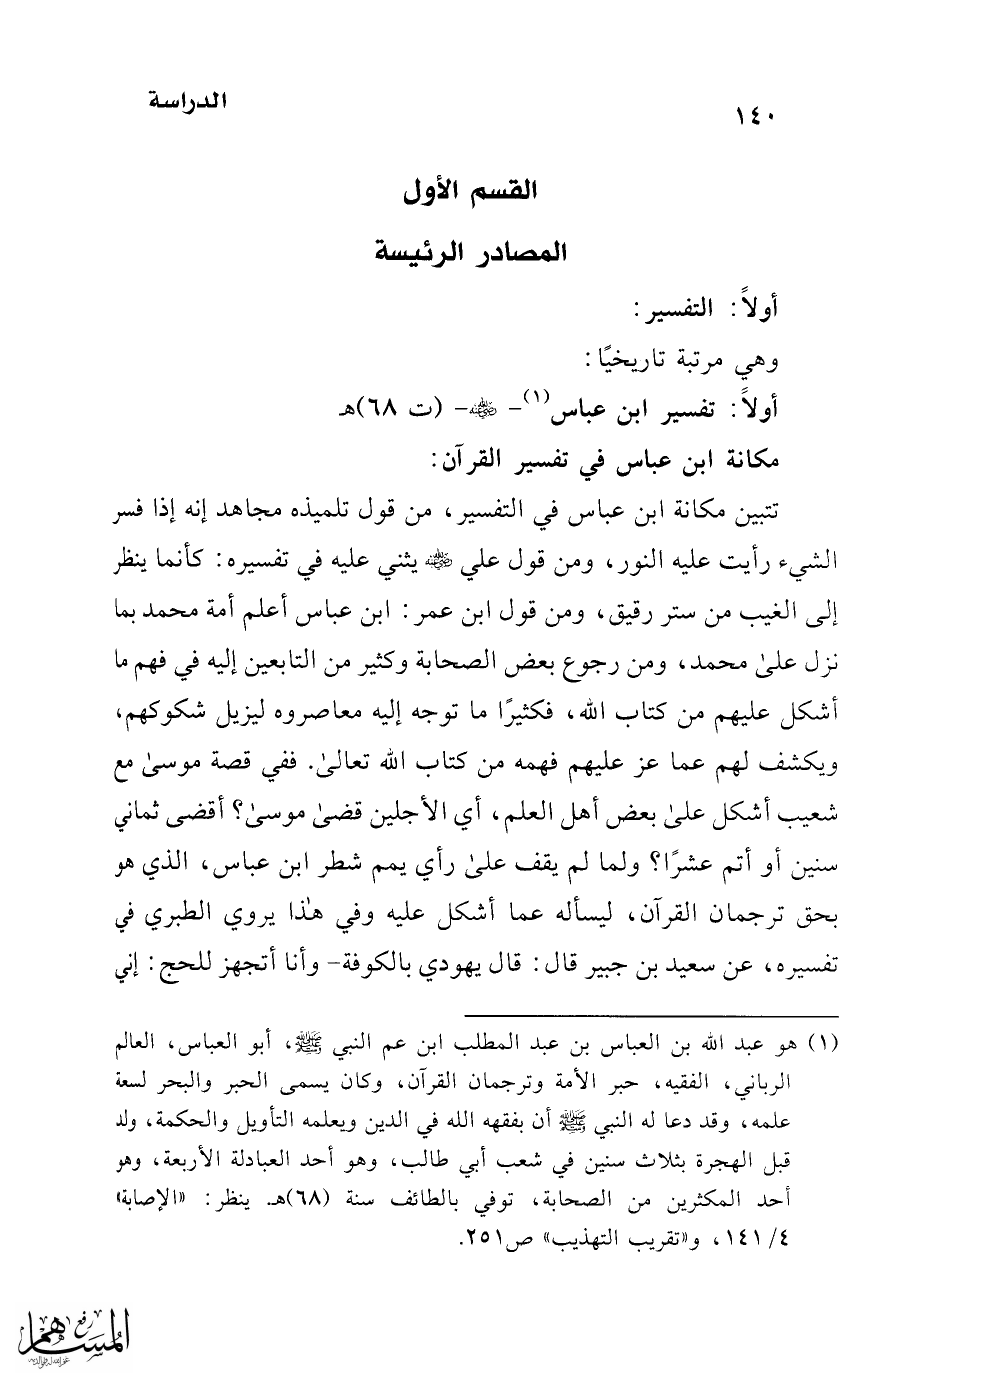 ١٤٠ الدراسة
القسم الأول
المصادر الرئيسة
أولاً: التفسير:
وهي مرتبة تاريخيًا:
أولاً: تفسير ابن عباس(١)- رضي الله عنه- (ت ٦٨)هـ
مكانة ابن عباس في تفسير القرآن:
تتبين مكانة ابن عباس في التفسير، من قول تلميذه مجاهد إنه إذا فسر
الشيء رأيت عليه النور، ومن قول علي رضي الله عنه يثني عليه في تفسيره: كأنما ينظر
إلى الغيب من ستر رقيق، ومن قول ابن عمر: ابن عباس أعلم أمة محمد بما
نزل علىٰ محمد، ومن رجوع بعض الصحابة وكثير من التابعين إليه في فهم ما
أشكل عليهم من كتاب الله، فكثيرًا ما توجه إليه معاصروه ليزيل شكوكهم،
ويكشف لهم عما عز عليهم فهمه من كتاب الله تعالىٰ. ففي قصة موسىٰ مع
شعيب أشكل علىٰ بعض أهل العلم، أي الأجلين قضىٰ موسىٰ؟ أقضى ثماني
سنين أو أتم عشرًا؟ ولما لم يقف علىٰ رأي يمم شطر ابن عباس، الذي هو
بحق ترجمان القرآن، ليسأله عما أشكل عليه وفي هٰذا يروي الطبري في
تفسيره، عن سعيد بن جبير قال: قال يهودي بالكوفة- وأنا أتجهز للحج: إني
(١) هو عبد الله بن العباس بن عبد المطلب ابن عم النبي ﷺ، أبو العباس، العالم
الرباني، الفقيه، حبر الأمة وترجمان القرآن، وكان يسمى الحبر والبحر لسعة
علمه، وقد دعا له النبي ﷺ أن يفقهه الله في الدين ويعلمه التأويل والحكمة، ولد
قبل الهجرة بثلاث سنين في شعب أبي طالب، وهو أحد العبادلة الأربعة، وهو
أحد المكثرين من الصحابة، توفي بالطائف سنة (٦٨)هـ. ينظر: «الإصابة»
٤/ ١٤١، و«تقريب التهذيب» ص٢٥١.